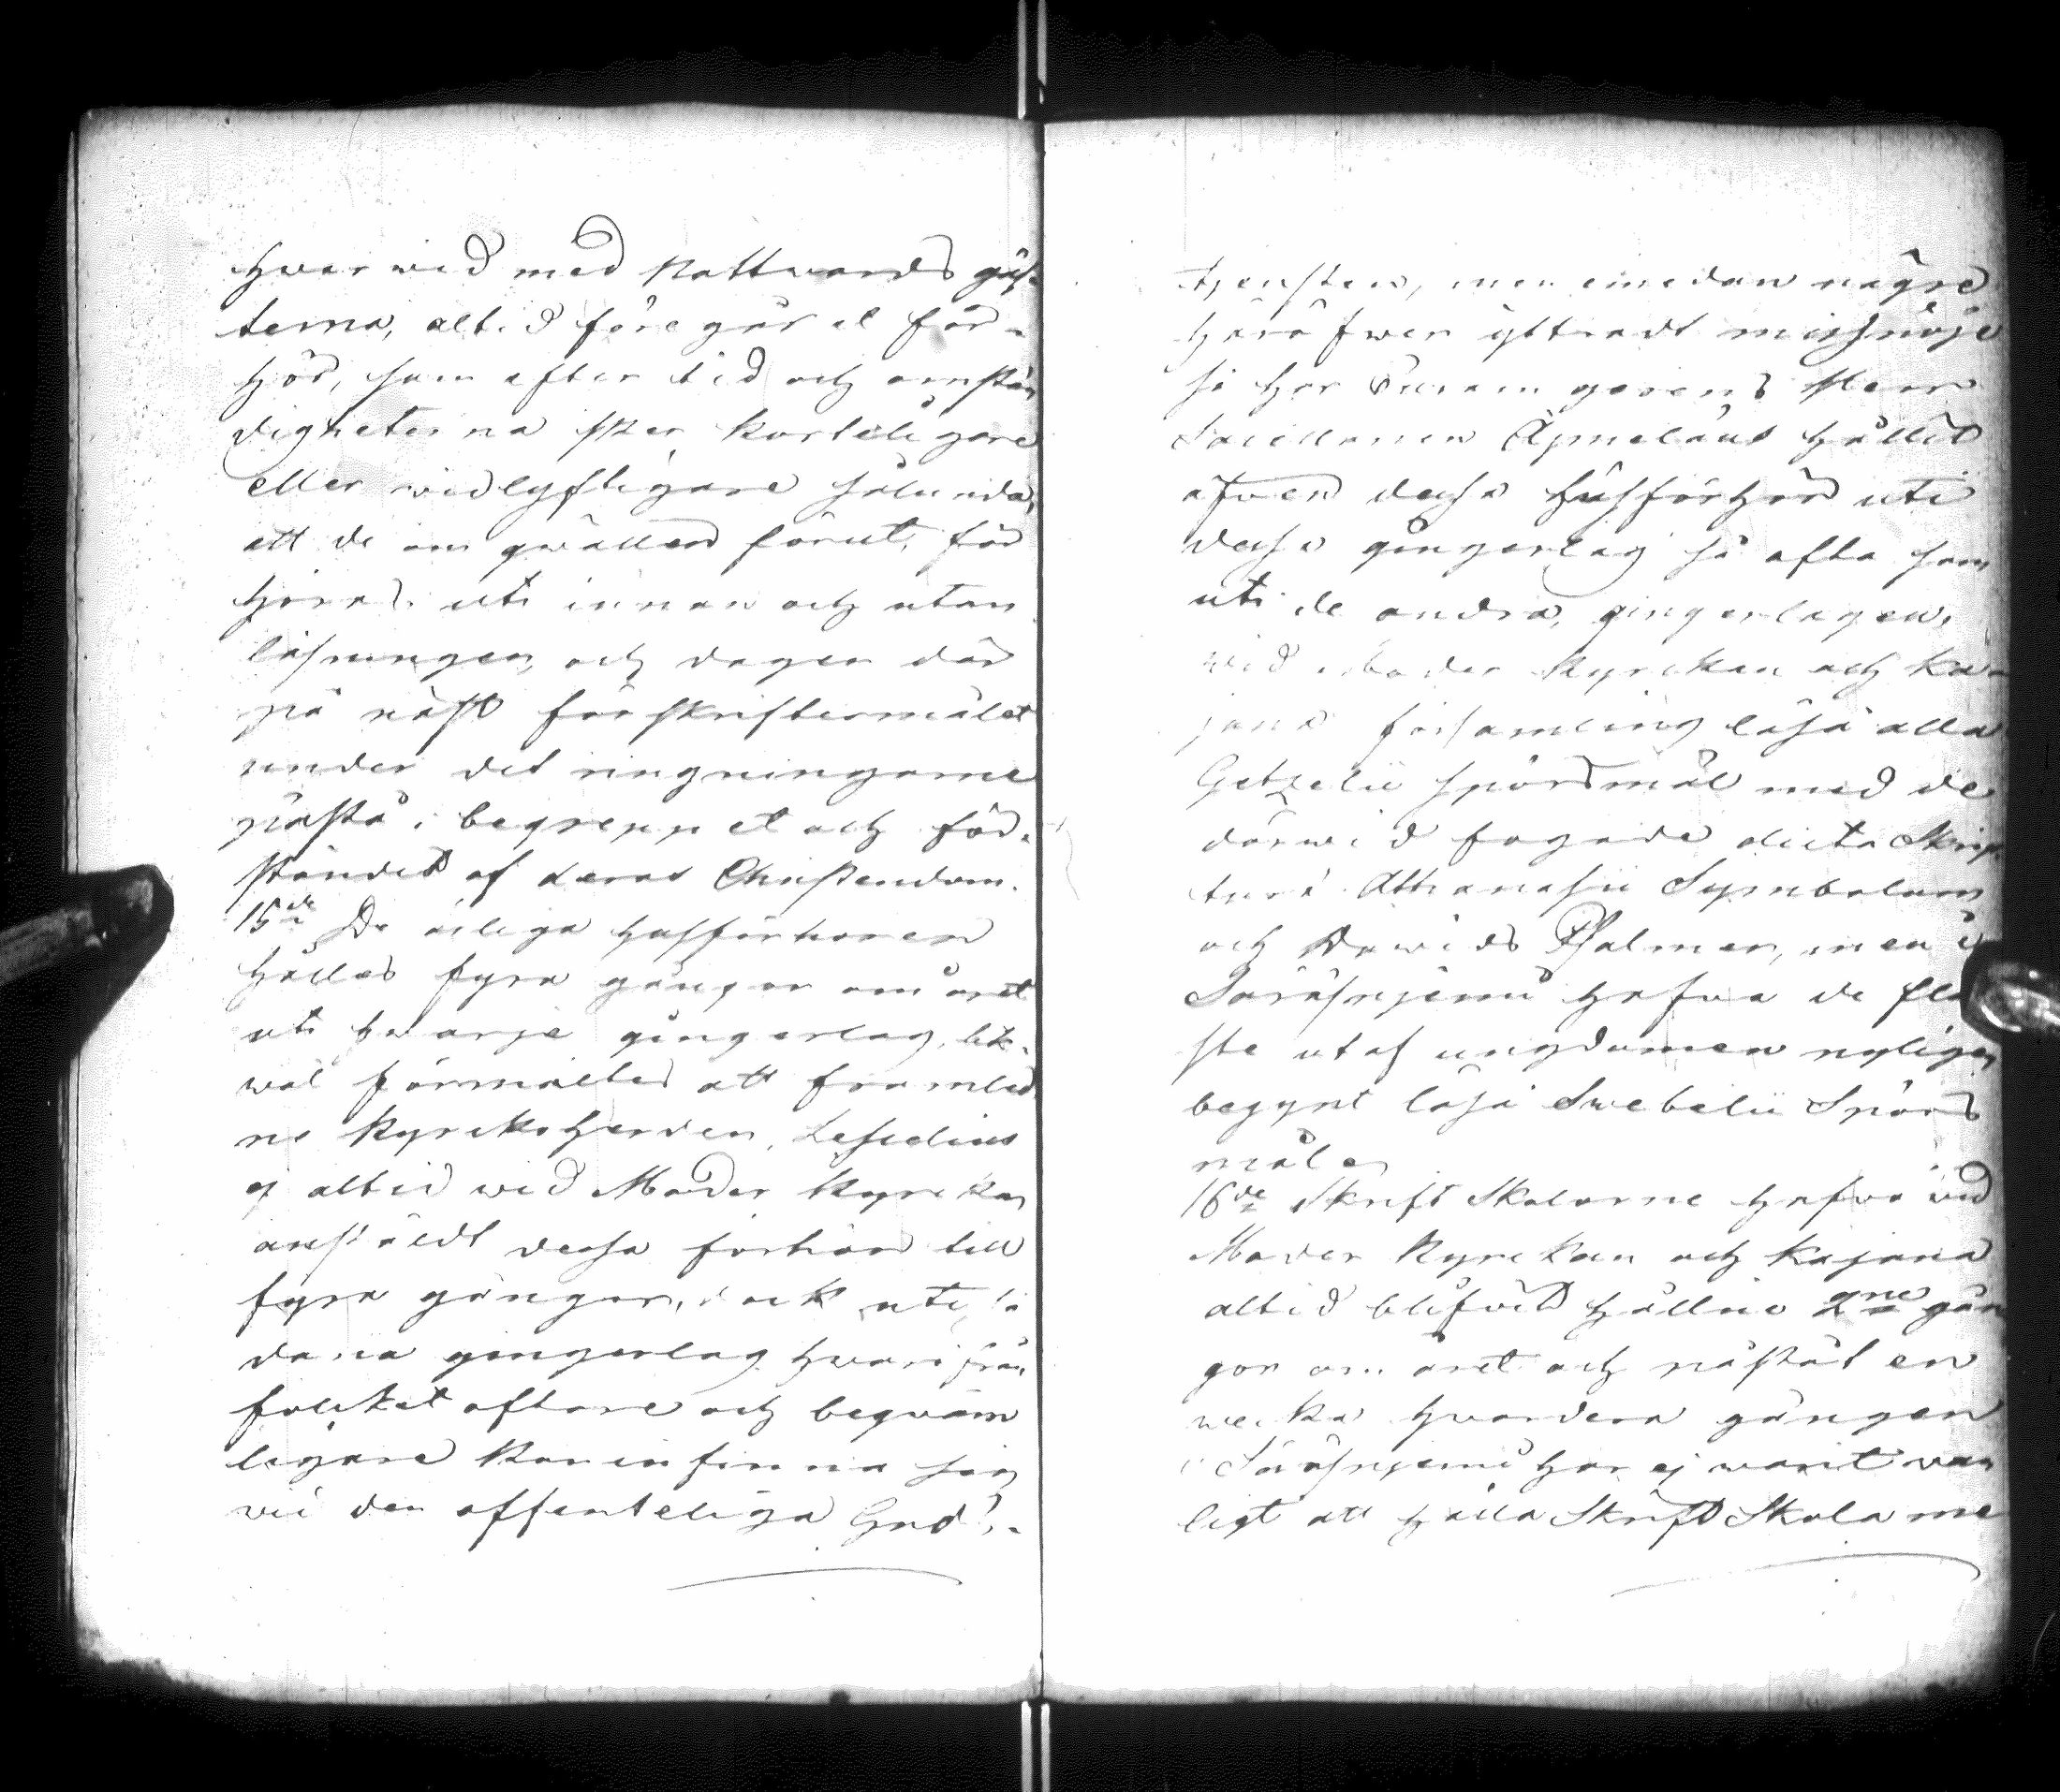 hwarwid med Nattwards gäs-
terna, altid föregår et för-
hör, som efter tid och omstän
digheterna sker korteligare
eller widlyftigare sålunda,
att de om qwällen förut, för
höras uti innan och utan
läsningen, och dagen där
på näst för skriftermålet
under det ringningarne
påstå, i begreppet och för-
ståndet af deras Christendom.
15de De årliga husförhören
hålles fyra gångor om året
uti hwarje gingerlag, lik-
wäl förmältes att framled
ne Kyrckoherden, Lefselius
ej altid wid Moder Kyrckan
anstäldt dessa förhör till
fyra gångor, dock uti så
dana gingerlag hwarifrån
folcket oftare och beqwäm
ligare kan infinna sig
wid den offenteliga Guds-
tjensten, men emedan någre
häröfwer yttradt missnöje
så har Sacellanen Äpmelæus hållit
äfwen dessa husförhör uti
dessa gingerlag så ofta som
uti de andra, gingerlagen,
wid Moder Kyrckan och Ka-
jana församling läsa alla
Getzelii spörsmål med de
därwid fogade dicta Skrip-
turæ Athanasii Symbolum
och Dawids Psalmer, men i
Säräsniemi hafwa de fle
ste utaf ungdomen nyligen
begynt läsa Swebelii Spörs
måle
16de Skrift Skolarne hafwa wid
Moder Kyrckan och Kajana
altid blifwit hållne 2ne gån
gor om året och nästat en
wecka hwardera gången
i Säräsniemi har ej warit wan
ligt att hålla Skrift Skola me